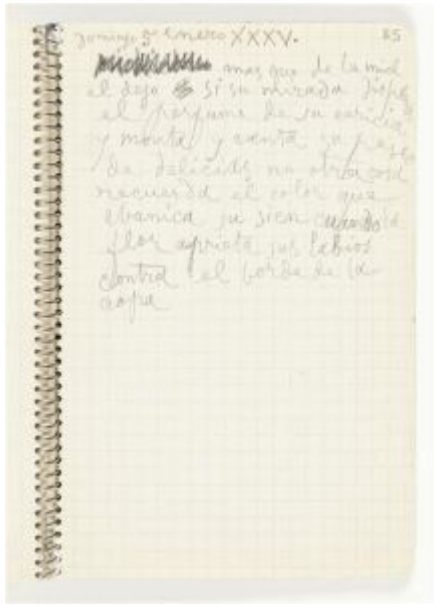 Domingo 5 Enero XXXV. 85
mas que de la miel
el dejo si su mirada
el perfume de su caricia
y monta y canta su
de delicias no otra cosa
recuerda el color que
abanica su sien cuando la
flor aprieta sus labios
contra el borde de la
copa